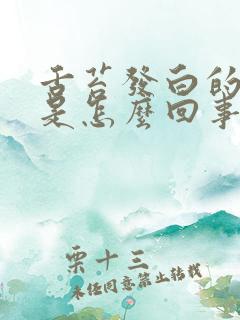 舌苔發白的
是怎麼回事
栗十三
未经同意禁止转载